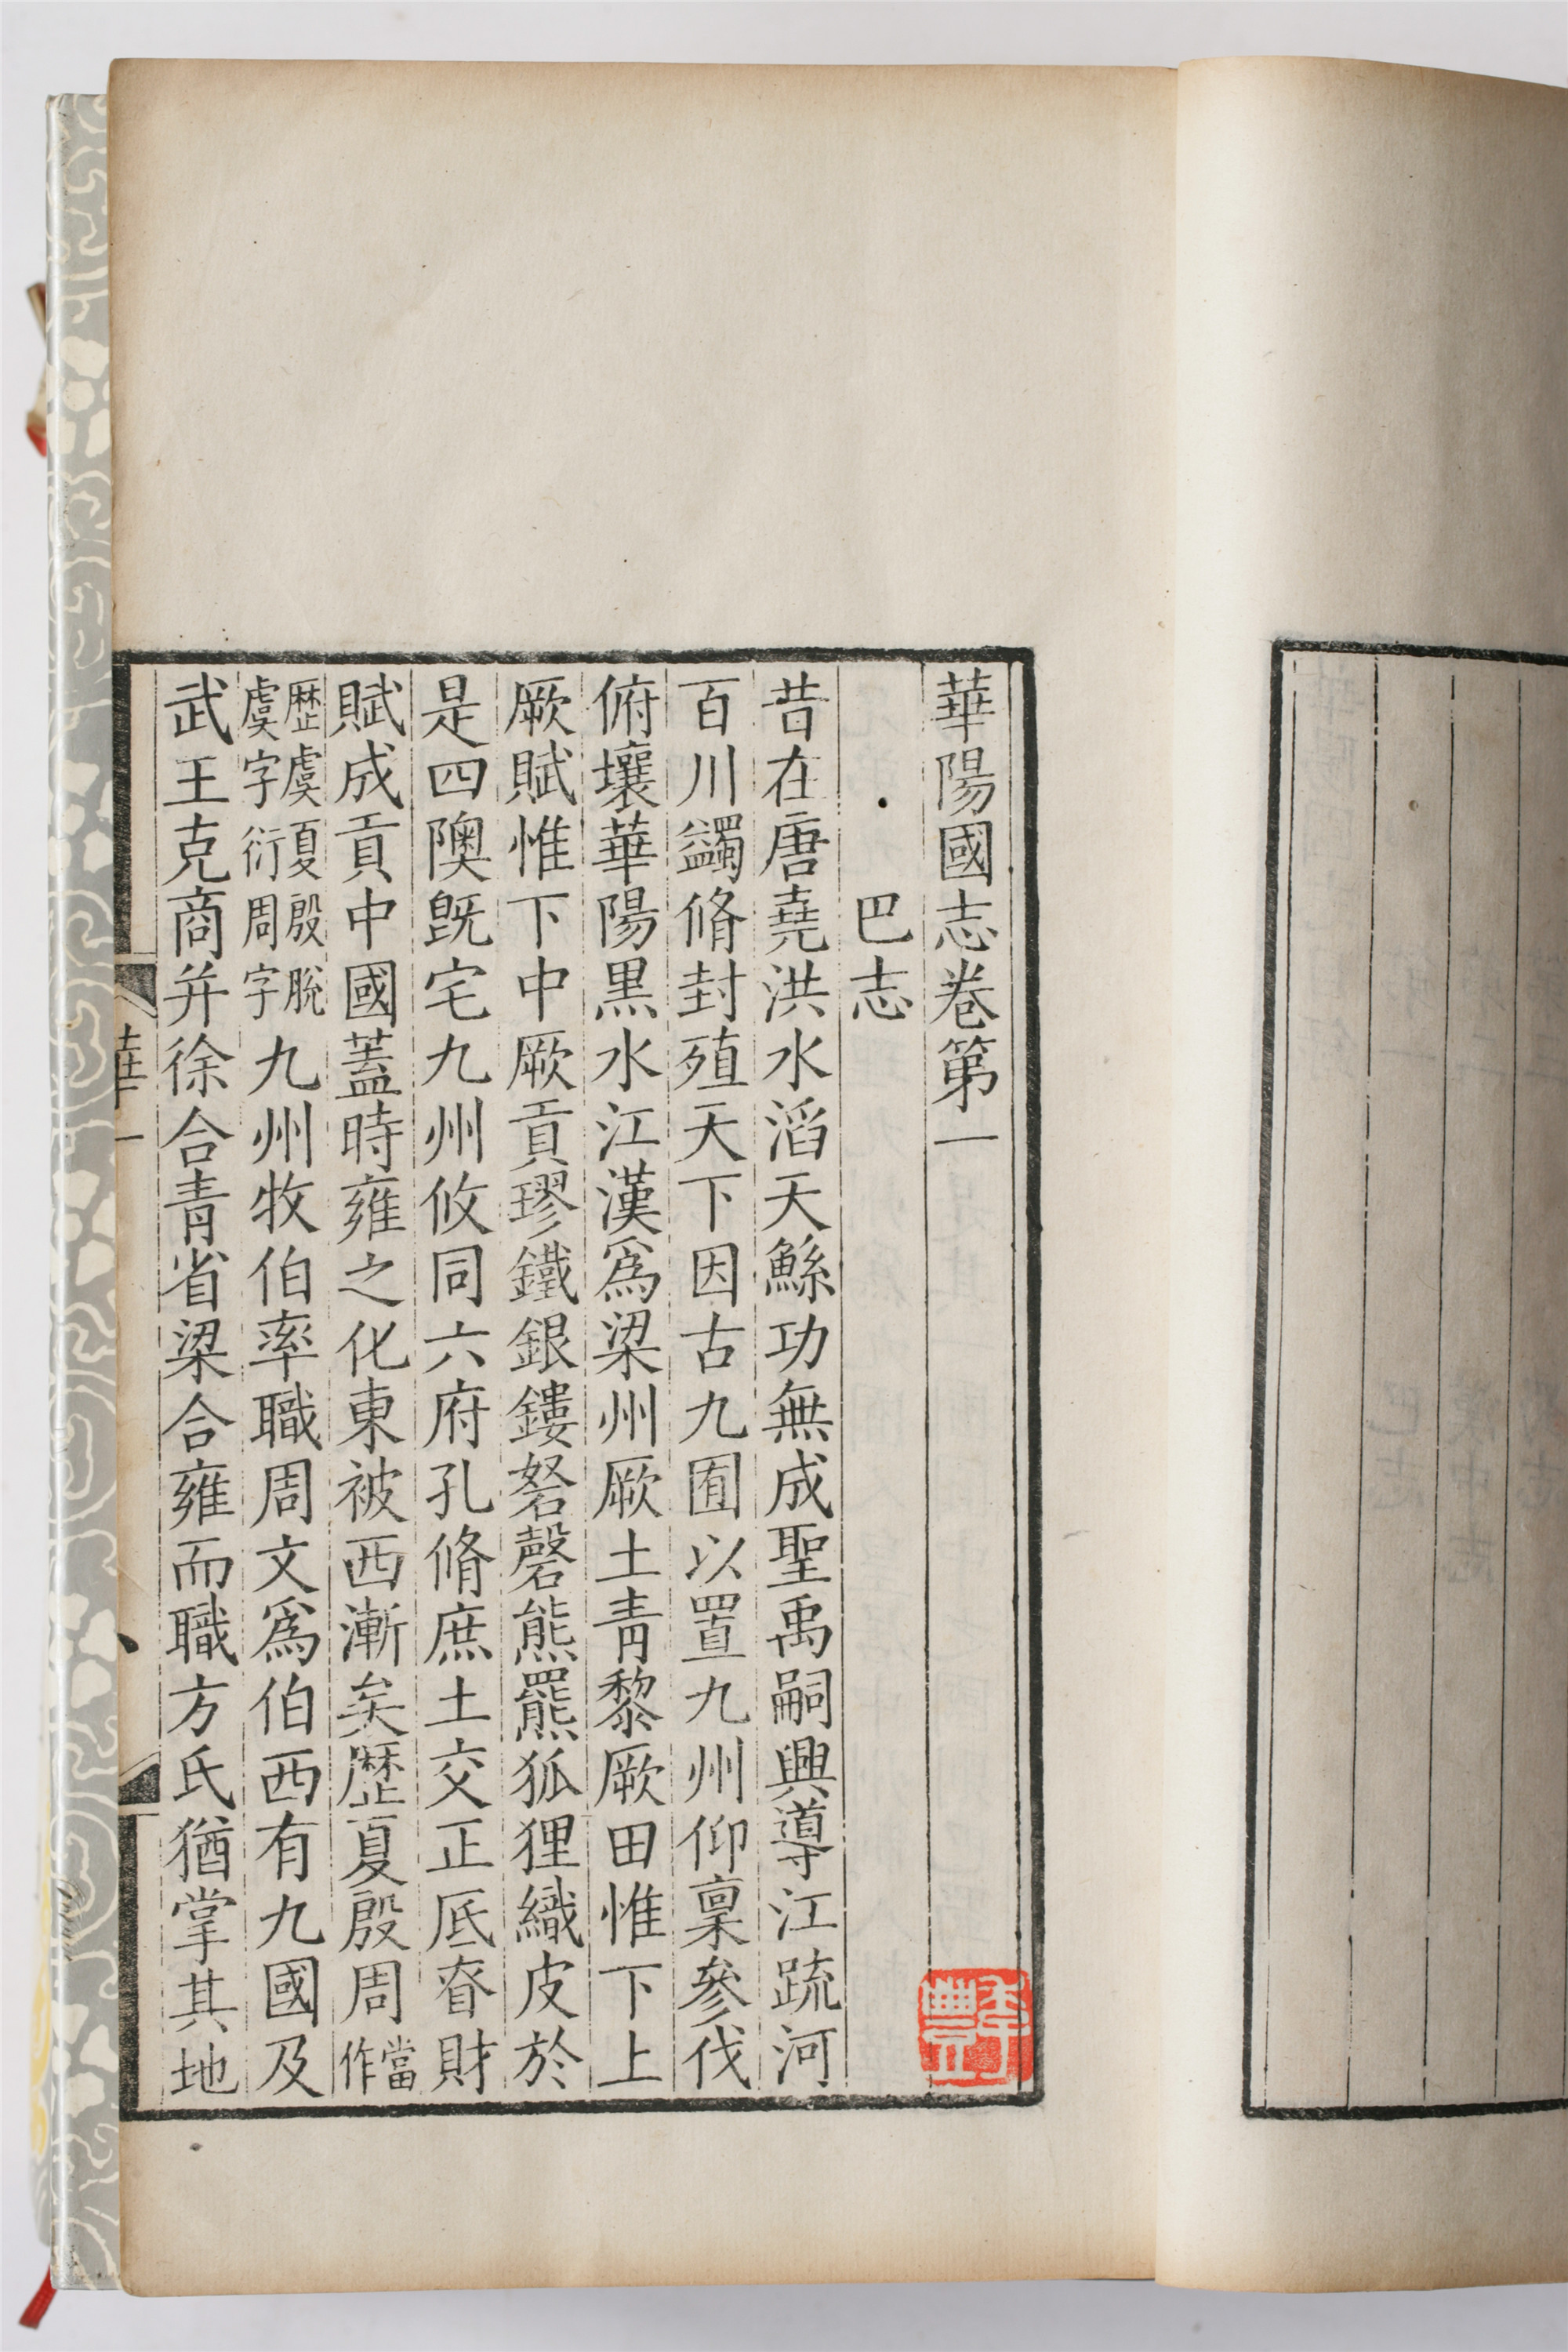 華陽國志卷第一
巴志
昔在唐堯洪水滔天鯀功無成聖禹嗣興導江疏河
百川蠲脩封殖天下因古九囿以置九州仰稟參伐
俯壤華陽黑水江漢爲梁州厥土青黎厥田惟下上
厥賦惟下中厥貢璆鐵銀鏤砮磬熊羆狐狸織皮於
是四隩旣宅九州攸同六府孔脩庶土交正厎眘財
賦成貢中國蓋時雍之化東被西漸矣歷夏殷周當作
歷虞夏殷脫虞字衍周字九州牧伯率職周文爲伯西有九國及
武王克商并徐合青省梁合雍而職方氏猶掌其地
華一